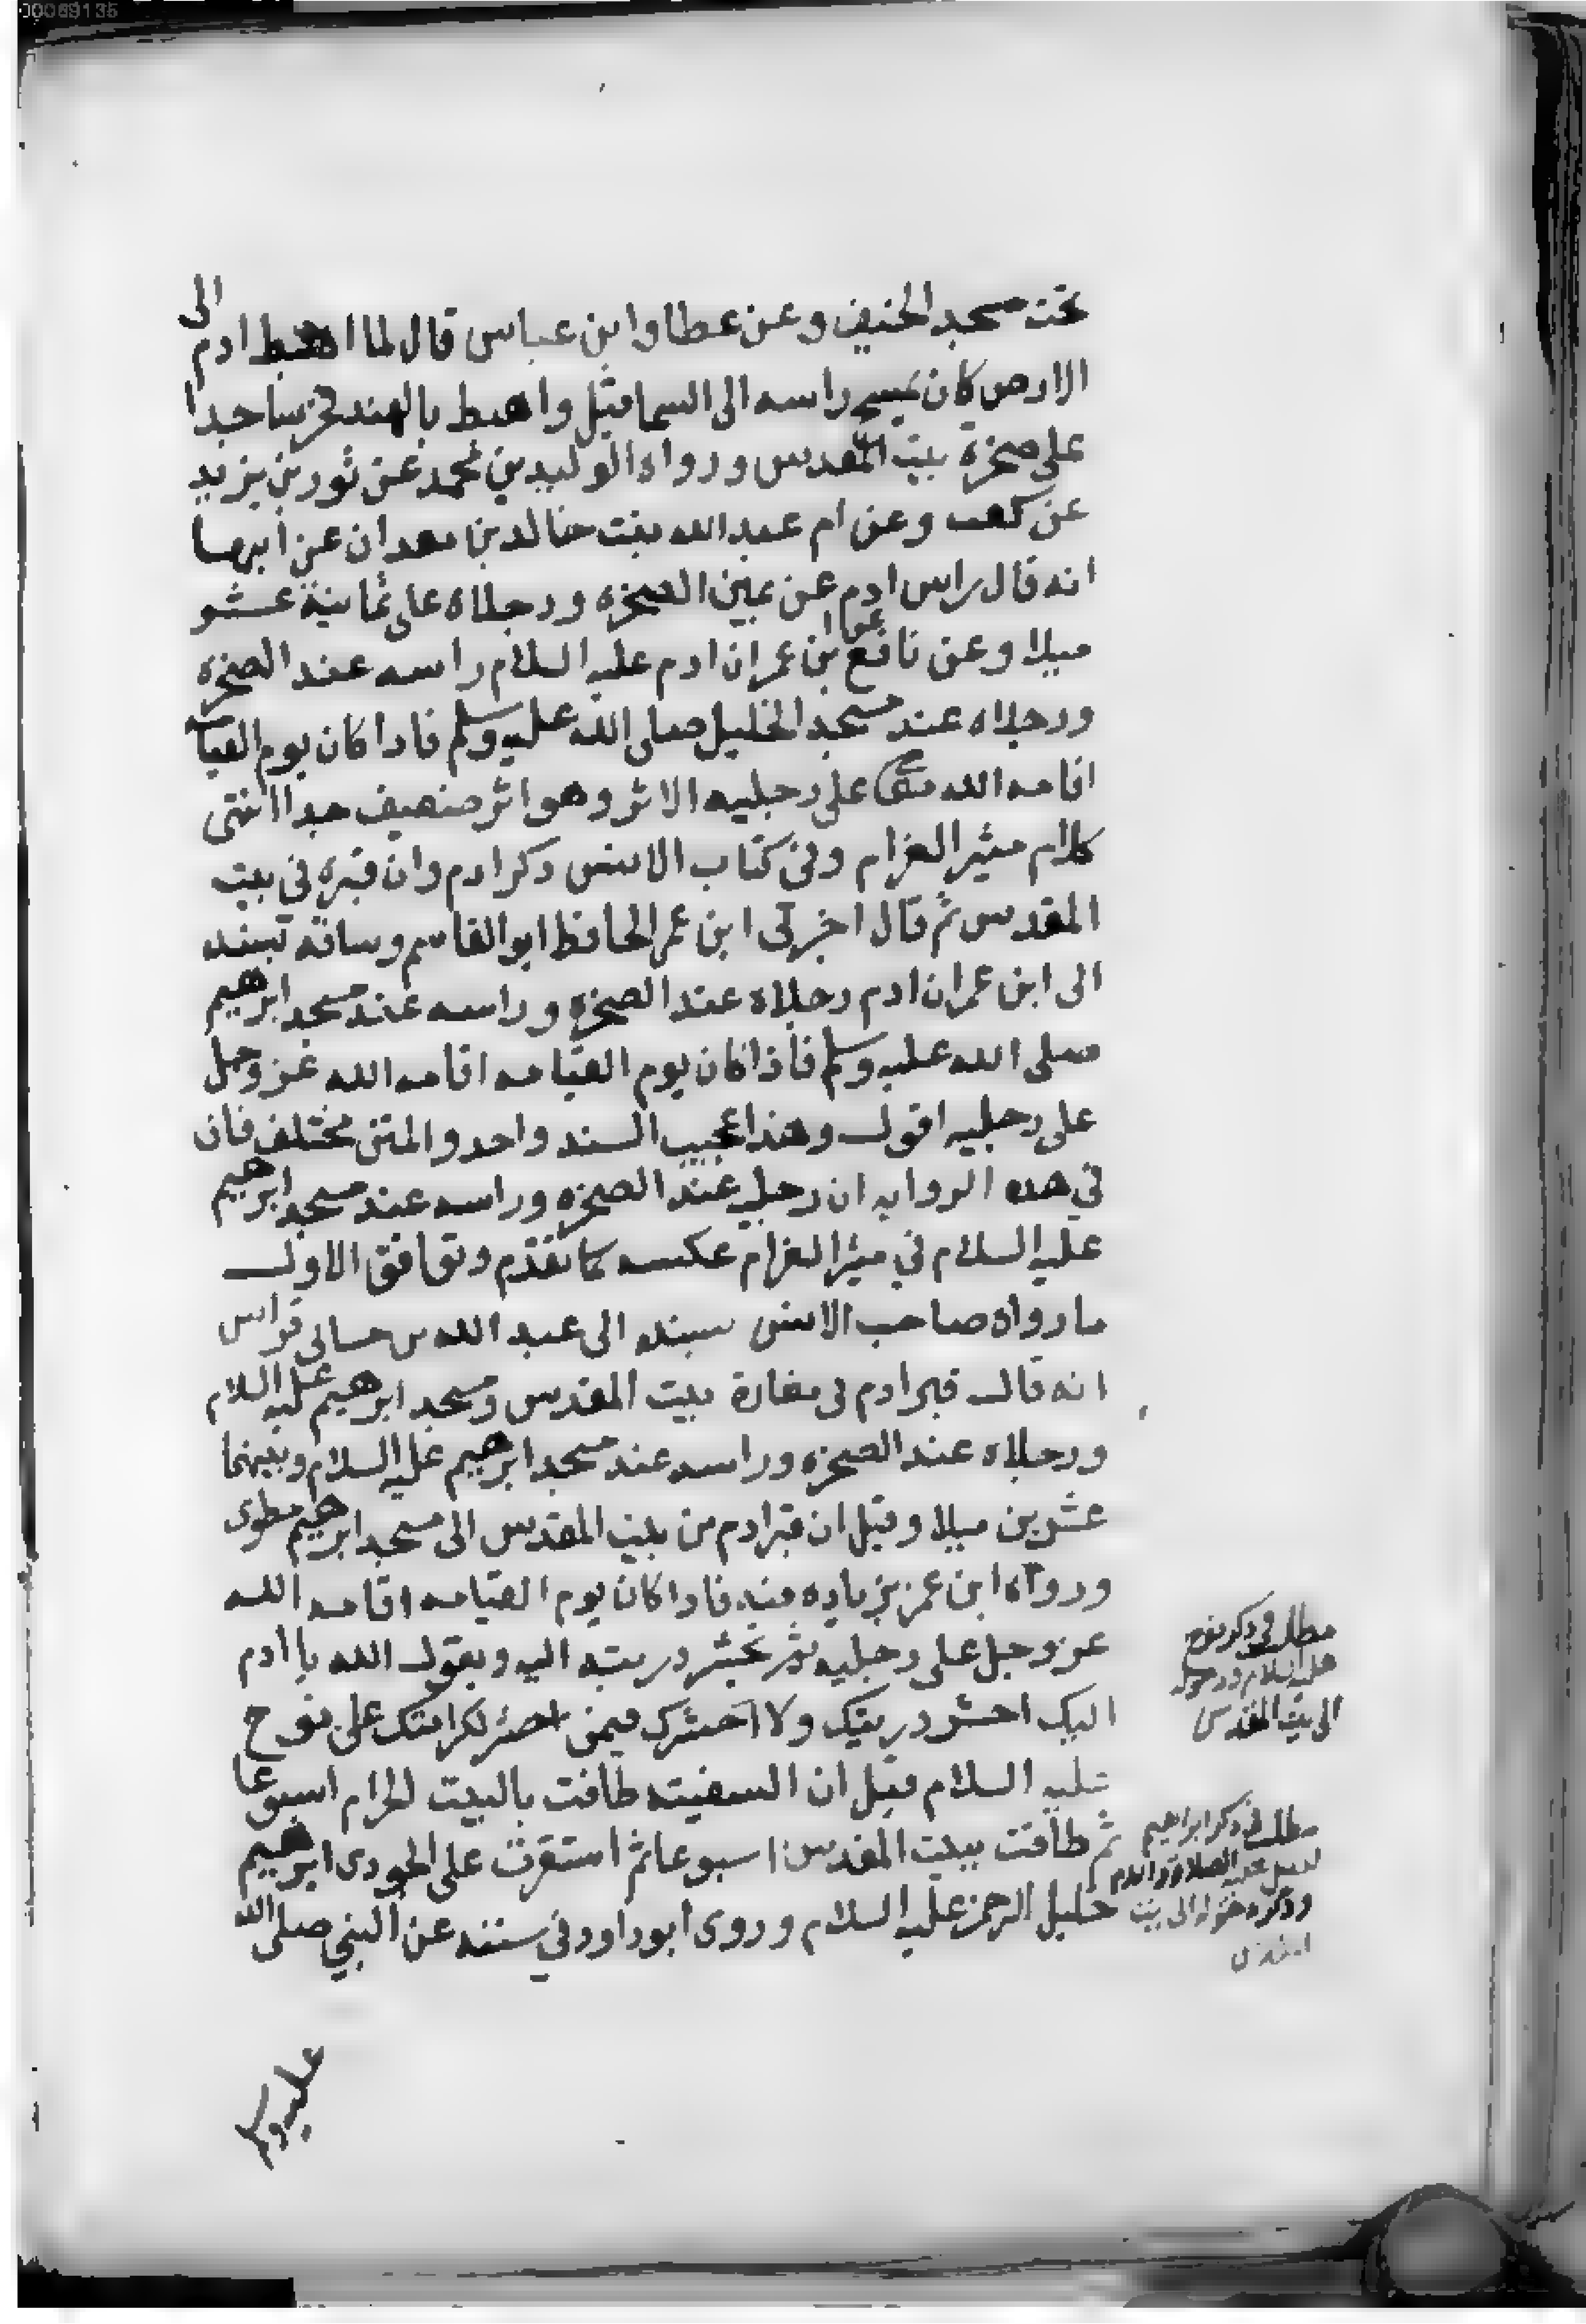 00069135
تحت مسجد الخيف وعن عطا وابن عباس قال لما اهبط ادم الى
الارض كان يمسح راسه الى السما قبل واهبط بالهند فخر ساجدا
على صخرة بيت المقدس ورواه الوليد بن محمد عن ثور بن يزيد
عن كعب وعن ام عبد الله بنت خالد بن معدان عن ابيها
انه قال راس ادم عن يمين الصخره ورجلاه على ثمانية عشر
ميلا وعن نافع عن ابن عمر ان ادم عليه السلام راسه عند الصخره
ورجلاه عند مسجد الخليل صلى الله عليه وسلم فاذا كان يوم القيامه
اقامه الله على رجليه الاثر وهو اثر ضعيف جدا انتهى
كلام مثير الغرام وفي كتاب الانس ذكر ادم وان قبره في بيت
المقدس ثم قال اخبرني ابن عمر الحافظ ابو القاسم وساقه بسنده
الى ابن عمر ان ادم رجلاه عند الصخره وراسه عند مسجد ابرهيم
صلى الله عليه وسلم فاذا كان يوم القيامه اقامه الله عز وجل
على رجليه اقول وهذا عجيب السند واحد والمتن مختلف فان
في هده الروايه ان رجليه عند الصخره وراسه عند مسجد ابرهيم
عليه السلام في مثير الغرام عكسه كما تقدم وتوافق الاول
ما رواه صاحب الانس بسنده الى عبد الله بن
انه قال قبر ادم في مغارة بيت المقدس ومسجد ابرهيم عليه السلام
ورجلاه عند الصخره وراسه عند مسجد ابرهيم عليه السلام وبينهما
عشرين ميلا وقيل ان قبر ادم من بيت المقدس الى مسجد ابرهيم مطوى
ورواه ابن عمر بزياده فيه فاذا كان يوم القيامه اقامه الله
عز وجل على رجليه ثم تحشر دريته اليه ويقول الله يا ادم
اليك احشر دريتك ولا احشرك فيمن احشر لكرامتك على نوح
عليه السلام قيل ان السفينه طافت بالبيت الحرام اسبوعا
ثم طافت ببيت المقدس اسبوعا ثم استقرت على الجودى ابرهيم
خليل الرحمن عليه السلام وروى ابو داود في سننه عن النبي صلى الله
عليه وسلم
مطلب في ذكر نوح
عليه السلام ودخوله
الى بيت المقدس
مطلب في ذكر ابراهيم
الخليل عليه الصلاة والسلام
وذكر دخوله الى بيت
المقدس